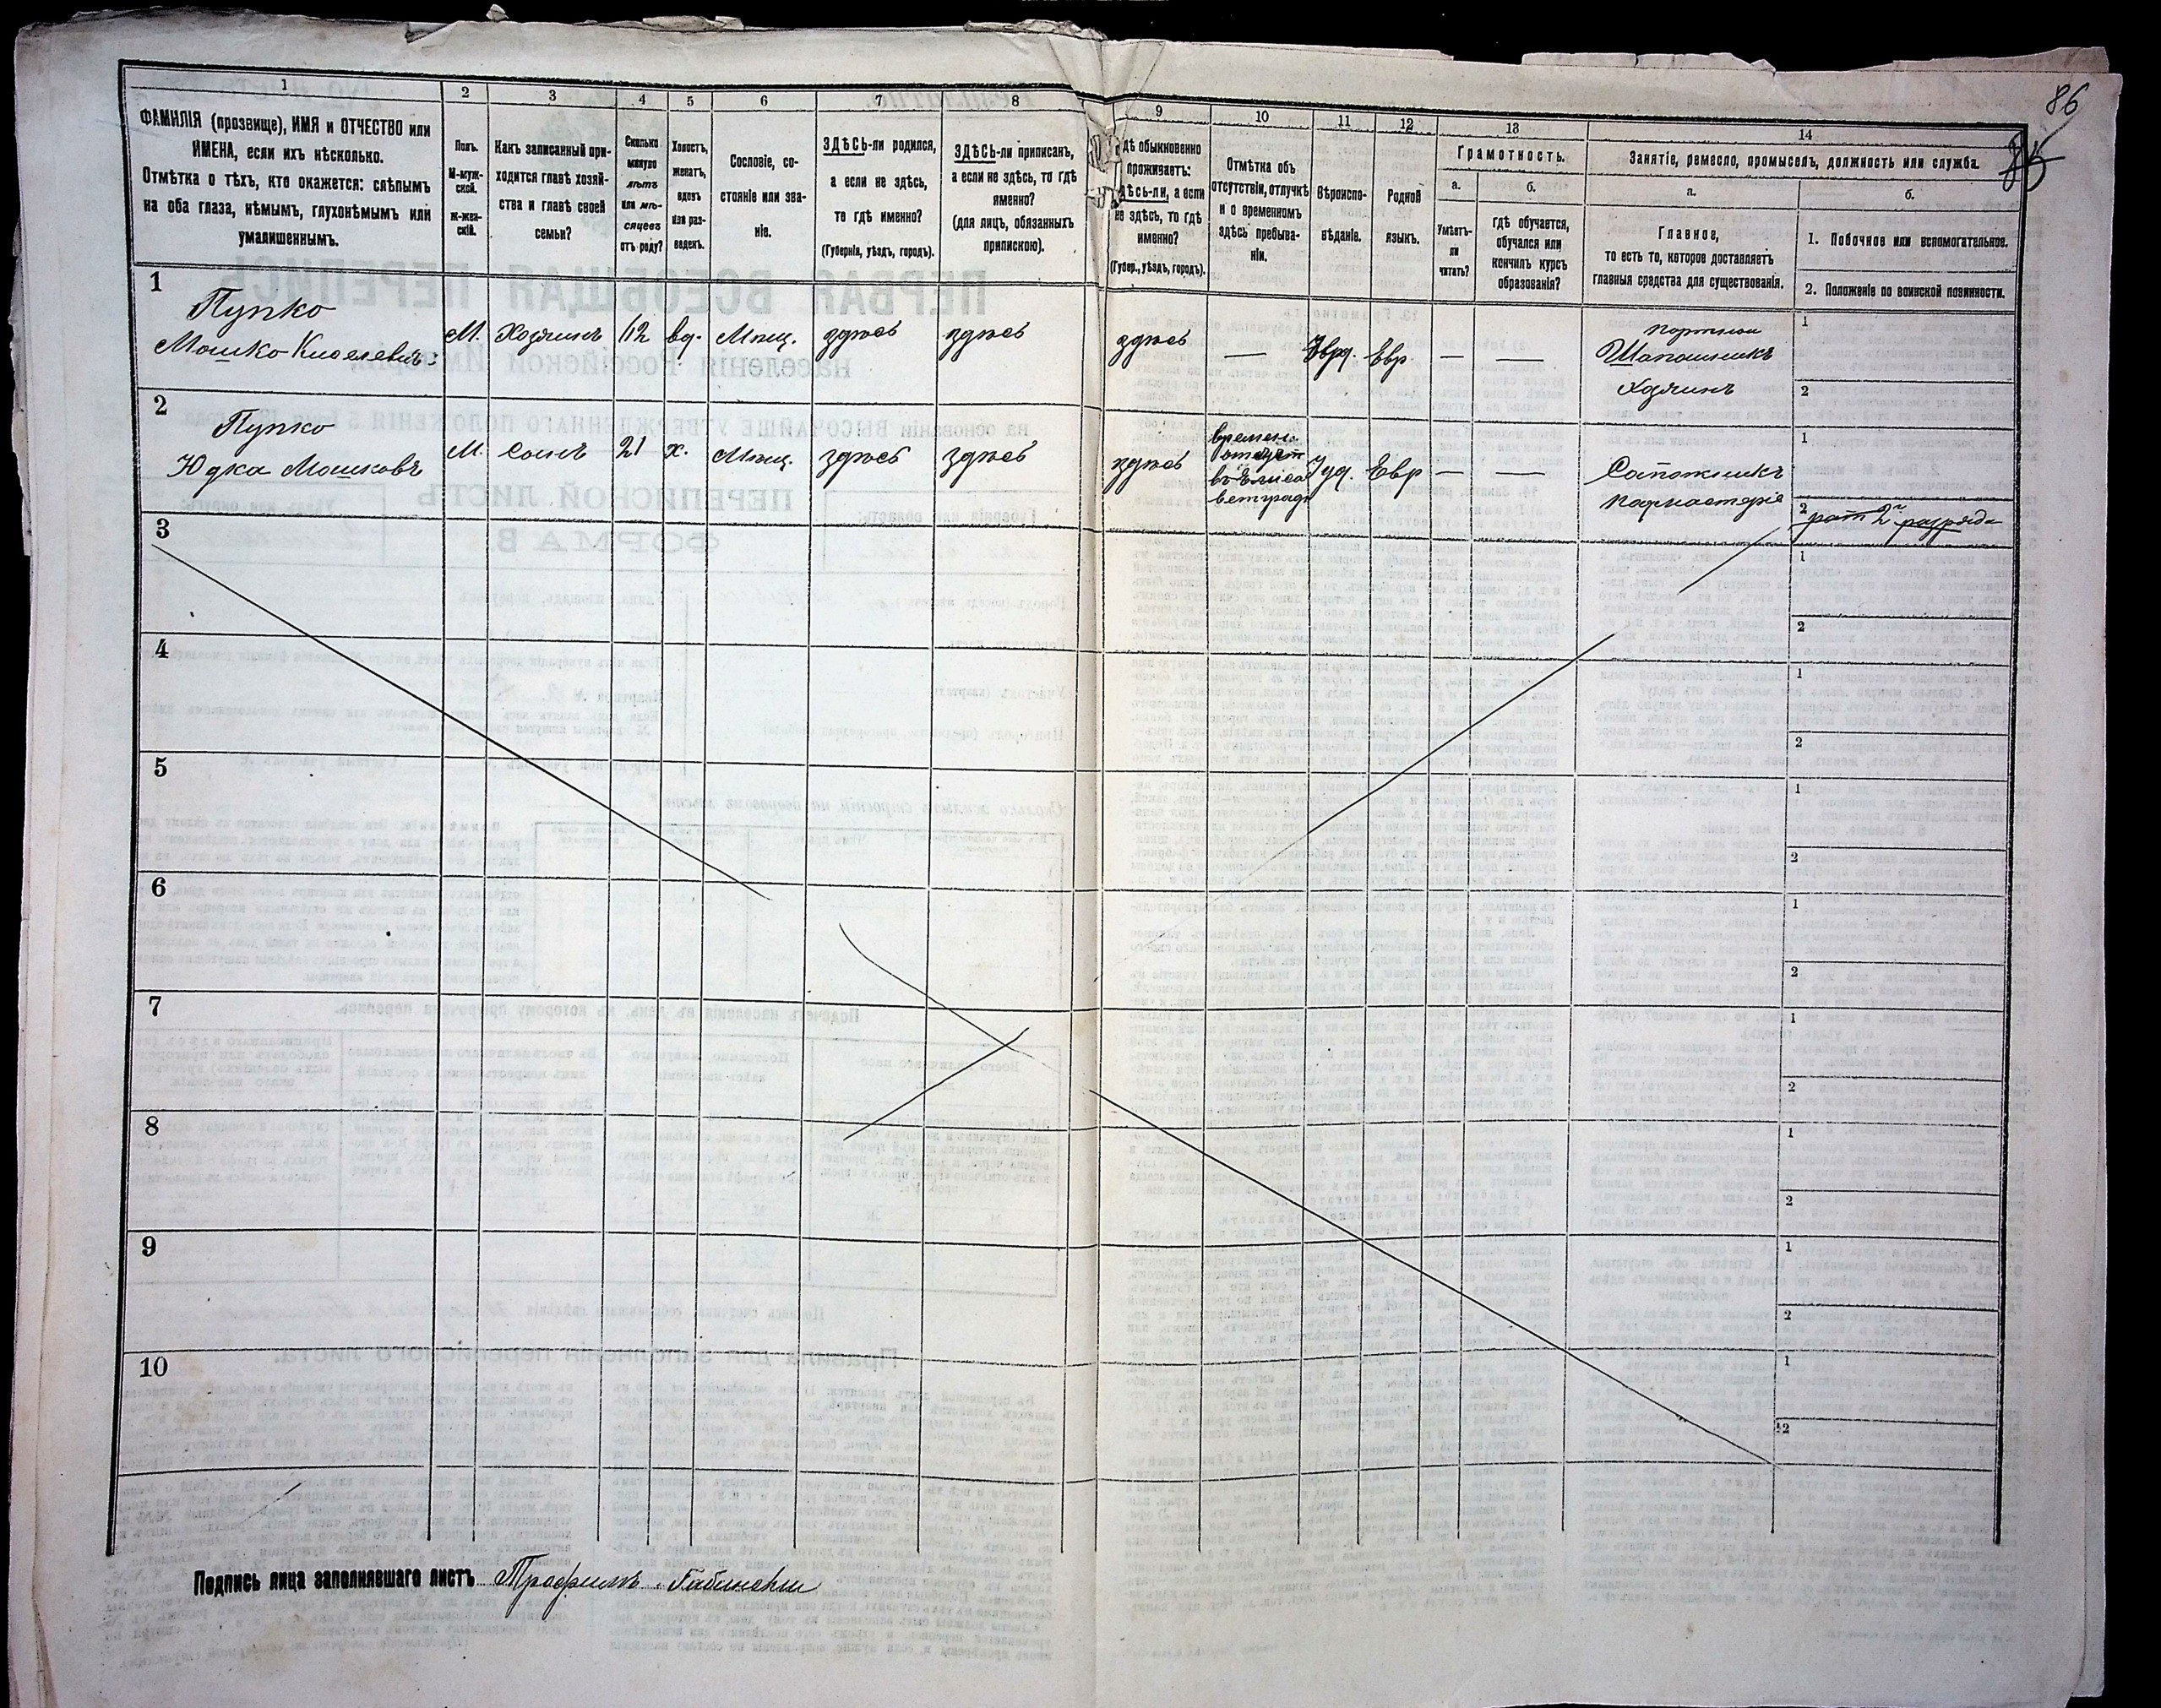 86
1
2
3
4
5
6
7
8
9
10
11
12
13
14
ФАМИЛІЯ (прозвище), ИМЯ и ОТЧЕСТВО или
ИМЕНА, если ихъ нѣсколько.
Отмѣтка о тѣхъ, кто окажется: слѣпымъ
на оба глаза, нѣмымъ, глухонѣмымъ или
умалишеннымъ.
Полъ.
М-муж-
ской.
Ж-жен-
скій.
Какъ записанный при-
ходится главѣ хозяй-
ства и главѣ своей
семьи?
Сколько
минуло
лѣтъ
или мѣ-
сяцевъ
отъ роду?
Холостъ,
женатъ,
вдовъ
или раз-
веденъ.
Сословіе, со-
стояніе или зва-
ніе.
ЗДѢСЬ-ли родился,
а если не здѣсь,
то гдѣ именно?
(Губернія, уѣздъ, городъ).
ЗДѢСЬ-ли приписанъ,
а если не здѣсь, то гдѣ
именно?
(для лицъ, обязанныхъ
припискою).
дѣ обыкновенно
проживаетъ:
ѣсь-ли, а если
не здѣсь, то гдѣ
именно?
(Губер., уѣздъ, городъ).
Отмѣтка объ
отсутствіи, отлучкѣ
и о временномъ
здѣсь пребыва-
ніи.
Вѣроиспо-
вѣданіе.
Родной
языкъ.
Грамотность.
а.
б.
Умѣетъ-
ли
читать?
гдѣ обучается,
обучался или
кончилъ курсъ
образованія?
Занятіе, ремесло, промыселъ, должность или служба.
а.
б.
Главное,
то есть то, которое доставляетъ
главныя средства для существованія.
1. Побочное или вспомогательное.
2. Положеніе по воинской повинности.
1
Пупко
Мошко Киселевичъ
М.
Хозяинъ
42
вд.
Мѣщ.
здѣсь
здѣсь
здѣсь
—
Іуд.
Евр
—
—
портной
Шапошникъ
хозяинъ
1
2
2
Пупко
Юдка Мошковъ
М
Сынъ
21
х.
Мѣщ.
здѣсь
здѣсь
здѣсь
времен.
отсут
въ Елиса
ветградѣ
Іуд.
Евр
—
—
Сапожникъ
1
2
рат 2 разряда
3
1
2
4
1
2
5
1
2
6
1
2
7
1
2
8
1
2
9
1
2
10
1
2
Подпись лица заполнявшаго листъ Трофимъ